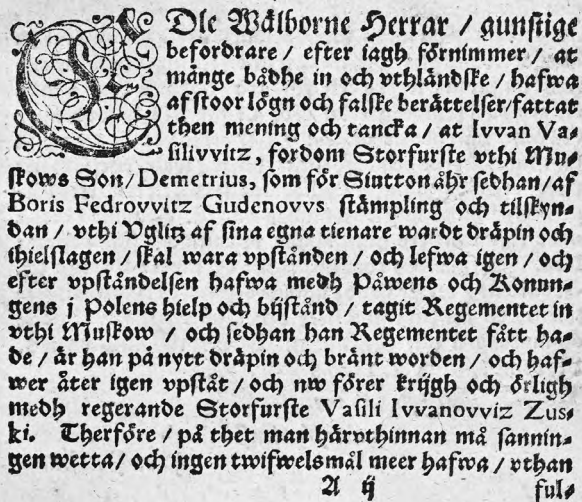 EDle Wälborne Herrar / gunstige
befordrare / efter iagh förnimmer / at
månge bådhe in och vthländske / hafwa
af stoor lögn och falske berättelser/fattat
then mening och tancka / at Ivvan Va⸗
silivvitz, fordom Storfurste vthi Mu⸗
skows Son/Demetrius, som för Siutton åhr sedhan/af
Boris Fedrovvitz Gudenovvs stämpling och tilskyn⸗
dan / vthi Vglitz af sina egna tienare wardt dräpin och
ihielslagen / skal wara vpstånden / och lefwa igen / och
efter vpståndelsen hafwa medh Påwens och Konun⸗
gens j Polens hielp och bijstånd / tagit Regementet in
vthi Muskow / och sedhan han Regementet fått ha⸗
de / är han på nytt dräpin och bränt worden / och haf⸗
wer åter igen vpståt / och nw förer krijgh och örligh
medh regerande Storfurste Vasili Ivvanovviz Zus⸗
ki. Therföre / på thet man härvthinnan må sannin⸗
gen wetta / och ingen twifwelsmål meer hafwa / vthan
A ij ful⸗